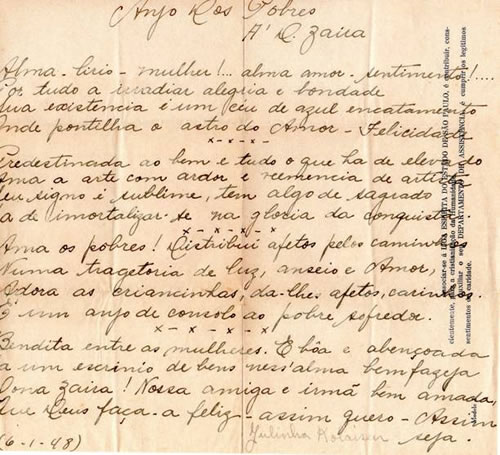 Anjo Dos Pobres
A' D. Zaira
Alma - lirio - mulher!... alma amor - sentimento!....
tudo a irradiar alegria e bondade
Sua existencia é um céu de azul encatamento
Onde pontilha o astro do Amor - Felicidade
x - x - x
Predestinada ao bem e tudo o que ha de elevado
Ama a arte com ardor e veemencia de artista
Seu signo é sublime, tem algo de sagrado
a de imortalizar-se na gloria da conquista
x - x - x - x - x
Ama os pobres! Distribui afetos pelos caminhos
Numa tragetoria de luz, anseio e Amor,
Adora as criancinhas, da-lhe afetos, carinhos.
É um anjo de consolo ao pobre sofredor.
x - x - x - x
Bendita entre as mulheres. É bôa e abençoada
a um escrinio de bens ness'alma bemfazeja
Dona Zaira! Nossa amiga e irmã bem amada,
Que Deus faça-a feliz - assim quero - Assim
seja.
Julinha
(6-1-48)
associar-se á LIGA ESPIRITA DO ESTADO DE SÃO PAULO, é contribuir,
para a cristianização da Humanidade.
Auxiliar o seu DEPARTAMENTO DE ASSISTENCIA, é cumprir os legitimos
sentimentos de caridade.